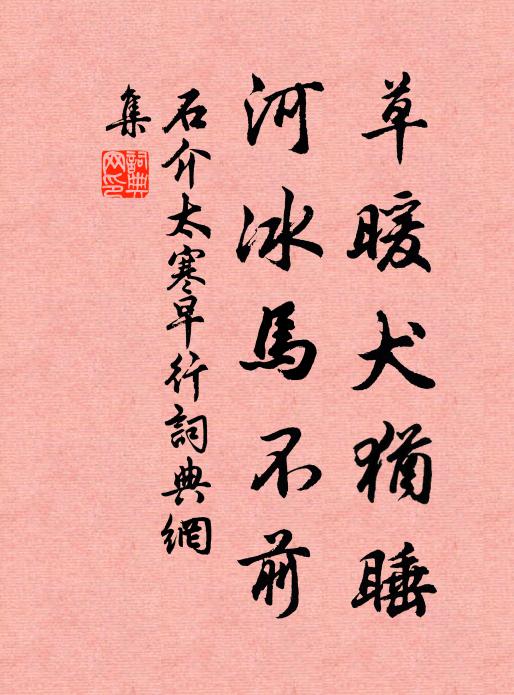 草暖犬猶睡
河冰馬不前
石介太寒早行詞典網
集
詞典
网印